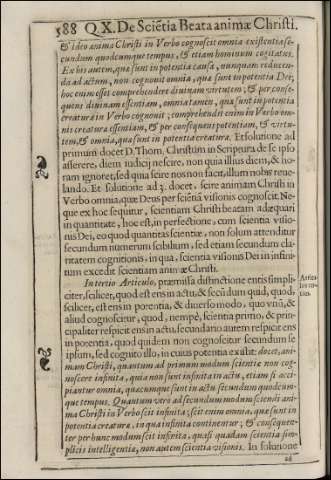 588 Q X. De Sciẽtia Beata animæ Christi.
& ideo anima Christi in Verbo cognoscit omnia existentia se-
cundum quodcumque tempus, & etiam hominum cogitatus.
Ex his autem, quæ sunt in potentia causæ, nunquam reducen-
da ad actum, non cognouit omnia, quæ sunt in potentia Dei,
hoc enim esset comprehendere diuinam virtutem, & per conse-
quens diuinam essentiam, omnia tamen, quæ sunt in potentia
creaturæ in Verbo cognouit; comprehendit enim in Verbo om-
nis creaturæ essentiam, & per consequens potentiam, & virtu-
tem, & omnia, quæ sunt in potentia creaturæ. Et solutione ad
primum docet D. Thom. Christum in Scripura de se ipso
asserere, diem iudicij nescire, non quia illius diem, & ho-
ram ignoret, sed quia scire nos non facit, illum nobis reue-
lando. Et solutione ad 3. docet, scire animam Christi in
Verbo omnia, quæ Deus per scientiã visionis cognoscit. Ne-
que ex hoc sequitur, scientiam Christi beatam adæquari
in quantitate, hoc est, in perfectione, cum scientia visio-
nis Dei, eo quod quantitas scientiæ, non solum attenditur
secundum numerum scibilium, sed etiam secundum cla-
ritatem cognitionis, in qua, scientia visionis Dei in infini-
tum excedit scientiam animæ Christi.
In tertio Articulo, præmissa distinctione entis simpli-
citer, scilicet, quod est ens in actu, & secũdum quid, quod,
scilicet, est ens in potentia, & diuerso modo, quo vnũ, &
aliud cognoscitur, quod, nempè, scientia primo, & prin-
cipaliter respicit ens in actu, secundario autem respicit ens
in potentia, quod quidem non cognoscitur secundum se
ipsum, sed cognito illo, in cuius potentia existit: docet, ani-
mam Christi, quantum ad primum modum scientiæ non cog-
noscere infinita, quia non sunt infinita in actu, etiam si acci-
piantur omnia, quæcumque sunt in actu secundum quodcun-
que tempus. Quantum vero ad secundum modum sciendi ani-
ma Christi in Verbo scit infinita; scit enim omnia, quæ sunt in
potentia creaturæ, in qua infinita continentur; & consequen-
ter per hunc modum scit infinita, quasi quadam scientia sim-
plicis intelligentiæ, non autem scientia visionis. In solutione
ad